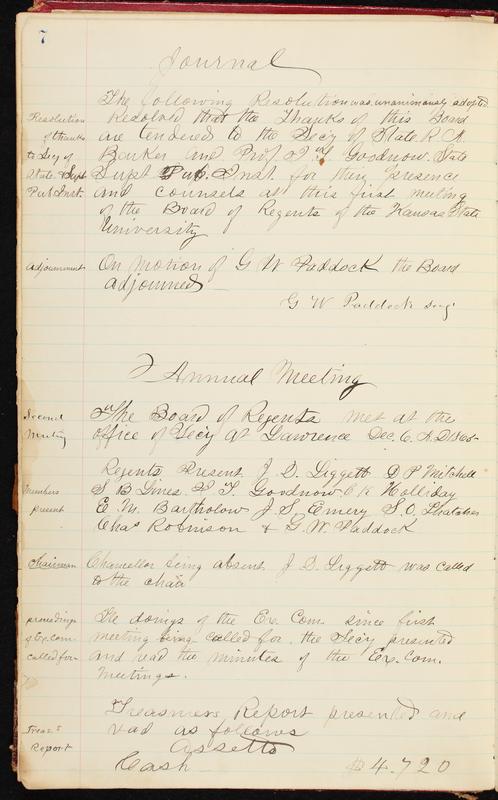 7
Journal
The following Resolution was unanimously adopted
Resolution
Resolved that the thanks of this Board
of thanks
are tendered to the Secy of State R A
to Secy of
Barker and Prof I T Goodnow State
State & Supt
Supt Pub. Inst. for their presence
Pub Inst.
and counsels at this first meeting
of the Board of Regents of the Kansas State
University
adjournment
On motion of G W Paddock the Board
adjourned
G W Paddock Secy
Annual Meeting
Second
The Board of Regents met at the
Meeting
office of Secy at Lawrence Dec. 6. A.D. 1865-
Regents Present J. D. Liggett D P Mitchell
Members
S B Lines I T. Goodnow C K Holliday
present
E. M. Bartholow J S, Emery S. O, Thatcher
Chas Robinson & G. W. Paddock
Chairman
Chancellor being absent J D. Liggett was called
to the chair
proceedings
The doings of the Exe. Com. since first
of Ex. com.
meeting being called for. the Secy presented
called for-
and read the minutes of the Exe. Com.
meetings.
Treasurers Report presented and
Treas's
read as follows
Report
Assetts
Cash $4.720